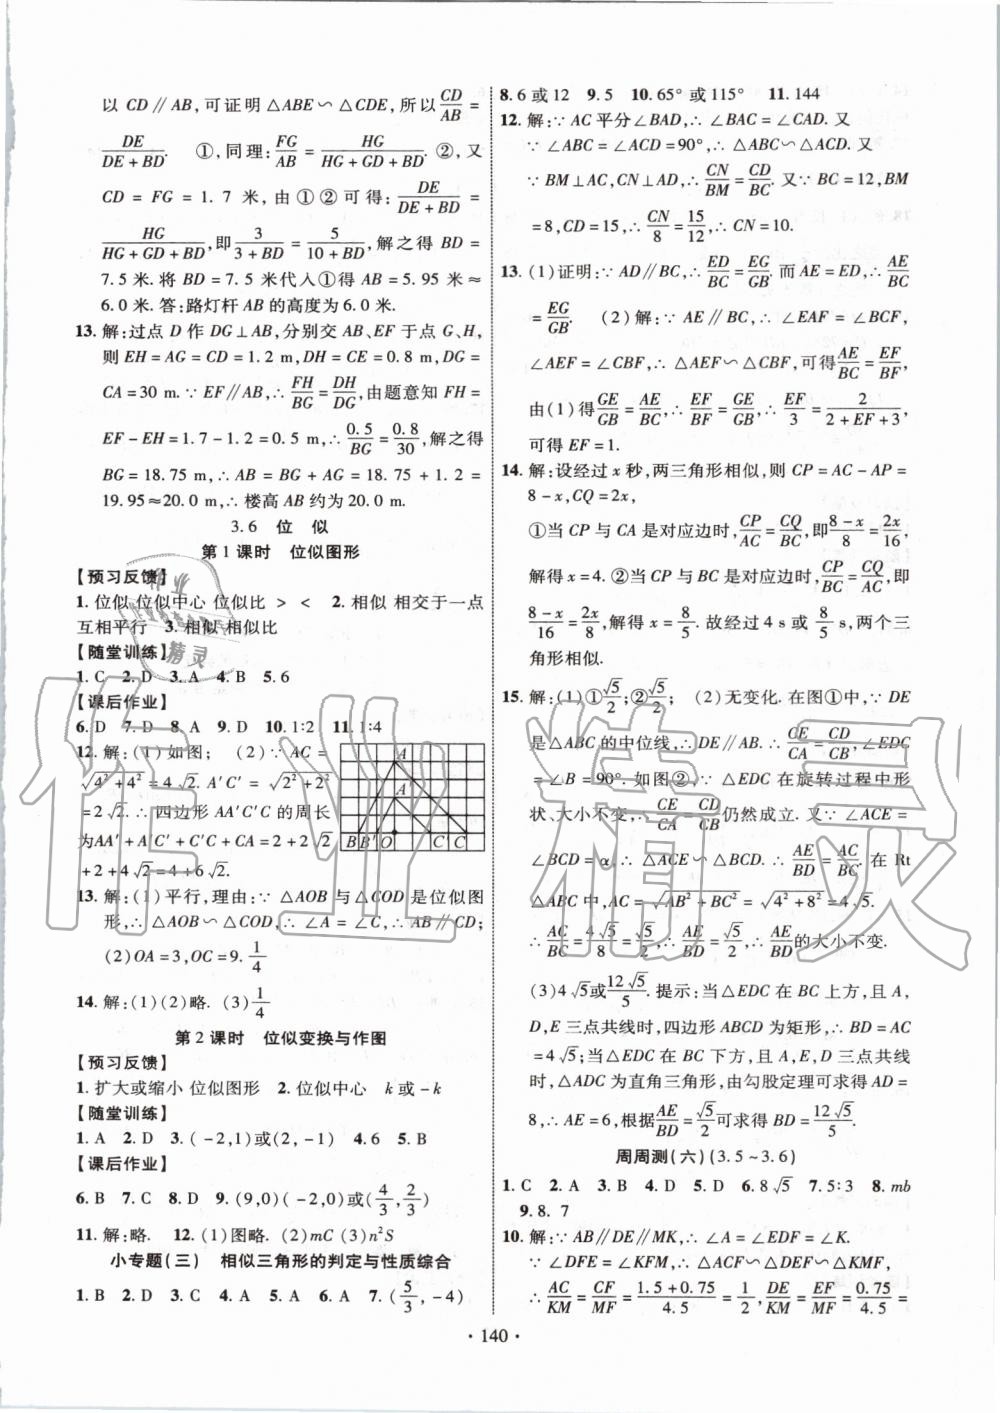 以 CD∥AB,可证明△ABE∽△CDE,所以 CD/AB =
DE/(DE+BD). ①,同理:FG/AB = HG/(HG+GD+BD). ②,又
CD = FG = 1.7 米,由①②可得:DE/(DE+BD) =
HG/(HG+GD+BD),即 3/(3+BD) = 5/(10+BD),解之得 BD =
7.5 米.将 BD = 7.5 米代入①得 AB = 5.95 米≈
6.0 米.答:路灯杆 AB 的高度为 6.0 米.
13.解:过点 D 作 DG⊥AB,分别交 AB、EF 于点 G、H,
则 EH = AG = CD = 1.2 m,DH = CE = 0.8 m,DG =
CA = 30 m.∵EF∥AB,∴FH/BG = DH/DG,由题意知 FH =
EF-EH = 1.7-1.2 = 0.5 m,∴0.5/BG = 0.8/30,解之得
BG = 18.75 m,∴AB = BG+AG = 18.75+1.2 =
19.95≈20.0 m.∴楼高 AB 约为 20.0 m.
3.6 位 似
第 1 课时 位似图形
【预习反馈】
1.位似 位似中心 位似比 > < 2.相似 相交于一点
互相平行 3.相似 相似比
【随堂训练】
1.C 2.D 3.A 4.B 5.6
【课后作业】
6.D 7.D 8.A 9.D 10.1∶2 11.1∶4
12.解:(1)如图; (2)∵AC =
√(4²+4²) = 4√2. A′C′ = √(2²+2²)
= 2√2.∴四边形 AA′C′C 的周长
为AA′+A′C′+C′C+CA = 2+2√2
+2+4√2 = 4+6√2.
A
A′
B B′ O C′ C
13.解:(1)平行,理由:∵△AOB 与△COD 是位似图
形,∴△AOB∽△COD,∴∠A = ∠C,∴AB∥CD;
(2)OA = 3,OC = 9. 1/4
14.解:(1)(2)略. (3)1/4
第 2 课时 位似变换与作图
【预习反馈】
1.扩大或缩小 位似图形 2.位似中心 k 或-k
【随堂训练】
1.A 2.D 3.(-2,1)或(2,-1) 4.6 5.B
【课后作业】
6.B 7.C 8.D 9.(9,0) (-2,0)或(4/3,2/3)
11.解:略. 12.(1)图略. (2)mC (3)n²S
小专题(三) 相似三角形的判定与性质综合
1.B 2.D 3.C 4.A 5.A 6.A 7.(5/3,-4)
8.6 或 12 9.5 10.65°或 115° 11.144
12.解:∵AC 平分∠BAD,∴∠BAC = ∠CAD.又
∵∠ABC = ∠ACD = 90°,∴△ABC∽△ACD.又
∵BM⊥AC,CN⊥AD,∴CN/BM = CD/BC.又∵BC = 12,BM
= 8,CD = 15,∴CN/8 = 15/12,∴CN = 10.
13.(1)证明:∵AD∥BC,∴ED/BC = EG/GB.而 AE = ED,∴AE/BC
= EG/GB. (2)解:∵AE∥BC,∴∠EAF = ∠BCF,
∠AEF = ∠CBF,∴△AEF∽△CBF,可得AE/BC = EF/BF,
由(1)得GE/GB = AE/BC,∴EF/BF = GE/GB,∴EF/3 = 2/(2+EF+3),
可得 EF = 1.
14.解:设经过 x 秒,两三角形相似,则 CP = AC-AP =
8-x,CQ = 2x,
①当 CP 与 CA 是对应边时,CP/AC = CQ/BC,即(8-x)/8 = 2x/16,
解得 x = 4.②当 CP 与 BC 是对应边时,CP/BC = CQ/AC,即
(8-x)/16 = 2x/8,解得 x = 8/5.故经过 4 s 或 8/5 s,两个三
角形相似.
15.解:(1)①√5/2;②√5/2; (2)无变化.在图①中,∵DE
是△ABC 的中位线,∴DE∥AB,∴CE/CA = CD/CB,∠EDC
= ∠B = 90°.如图②,∵△EDC 在旋转过程中形
状、大小不变,∴CE/CA = CD/CB仍然成立.又∵∠ACE =
∠BCD = α,∴△ACE∽△BCD,∴AE/BD = AC/BC.在 Rt
△ABC 中,AC = √(AB²+BC²) = √(4²+8²) = 4√5.
∴AC/BC = 4√5/8 = √5/2,∴AE/BD = √5/2,∴AE/BD的大小不变.
(3)4√5或12√5/5.提示:当△EDC 在 BC 上方,且 A,
D,E 三点共线时,四边形 ABCD 为矩形,∴BD = AC
= 4√5;当△EDC 在 BC 下方,且 A,E,D 三点共线
时,△ADC 为直角三角形,由勾股定理可求得 AD =
8,∴AE = 6,根据AE/BD = √5/2可求得 BD = 12√5/5.
周周测(六)(3.5~3.6)
1.C 2.A 3.B 4.D 5.D 6.8√5 7.5∶3 8.mb
9.8.7
10.解:∵AB∥DE∥MK,∴∠A = ∠EDF = ∠K.
∵∠DFE = ∠KFM,∴△ACF∽△DEF∽△KMF,
∴AC/KM = CF/MF = (1.5+0.75)/4.5 = 1/2,DE/KM = EF/MF = 0.75/4.5 =
· 140 ·
作业精灵